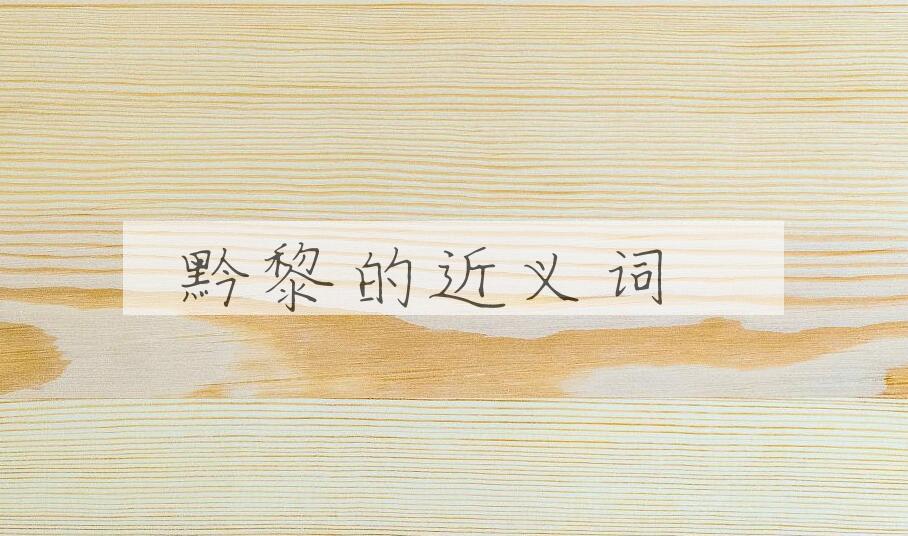 黔黎的近义词